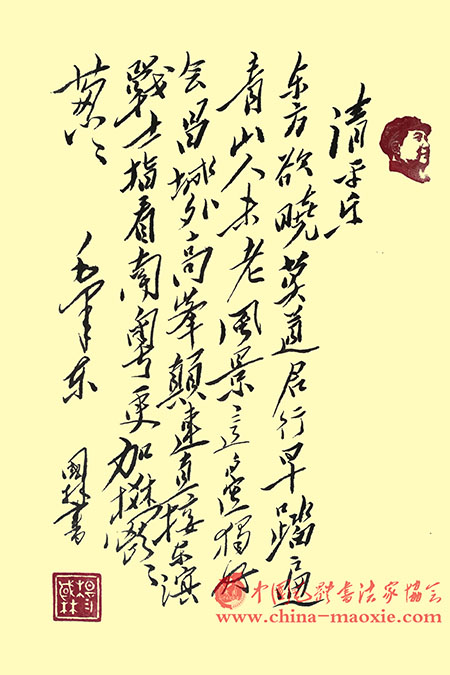 清平乐
东方欲晓莫道君行早踏遍
青山人未老风景这边独好
会昌城外高峯顛連直接东溟
戰士指看南粤更加欝々
葱々
毛泽东
國林書
中国毛体书法家协会
www.china-maoxie.com